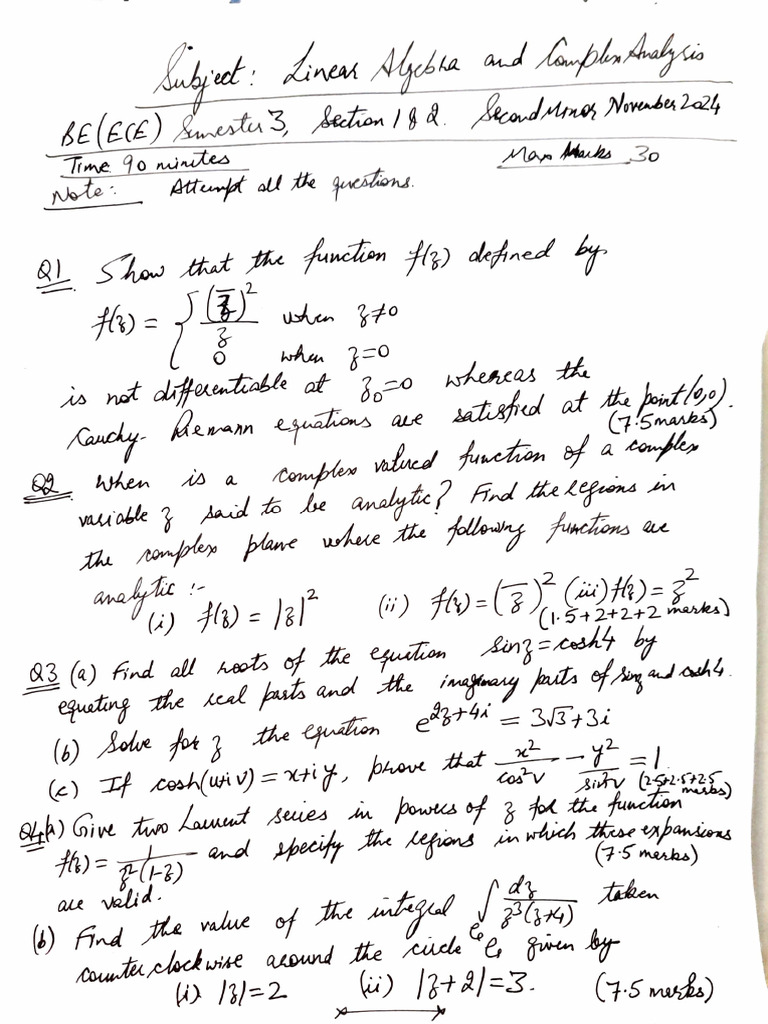 Subject: Linear Algebra and Complex Analysis
BE(ECE) Semester 3, Section 1 & 2. Second Minor November 2024
Time 90 minutes Max Marks 30
Note: Attempt all the questions.
Q1 Show that the function f(z) defined by
f(z) = { (z̄)²/z when z≠0
0 when z=0
is not differentiable at z₀=0 whereas the
Cauchy-Riemann equations are satisfied at the point (0,0).
(7.5 marks)
Q2 When is a complex valued function of a complex
variable z said to be analytic? Find the regions in
the complex plane where the following functions are
analytic :-
(i) f(z) = |z|² (ii) f(z) = (z̄)² (iii) f(z) = z²
(1.5+2+2+2 marks)
Q3 (a) Find all roots of the equation sin z = cosh 4 by
equating the real parts and the imaginary parts of sin z and cosh 4.
(b) Solve for z the equation e^(2z+4i) = 3√3+3i
(c) If cosh(u+iv) = x+iy, prove that x²/cos²v − y²/sin²v = 1
(2.5+2.5+2.5 marks)
Q4(a) Give two Laurent series in powers of z for the function
f(z) = 1/(z²(1-z)) and specify the regions in which these expansions
are valid. (7.5 marks)
(b) Find the value of the integral ∫_C dz/(z³(z+4)) taken
counter clockwise around the circle C given by
(i) |z|=2 (ii) |z+2|=3. (7.5 marks)